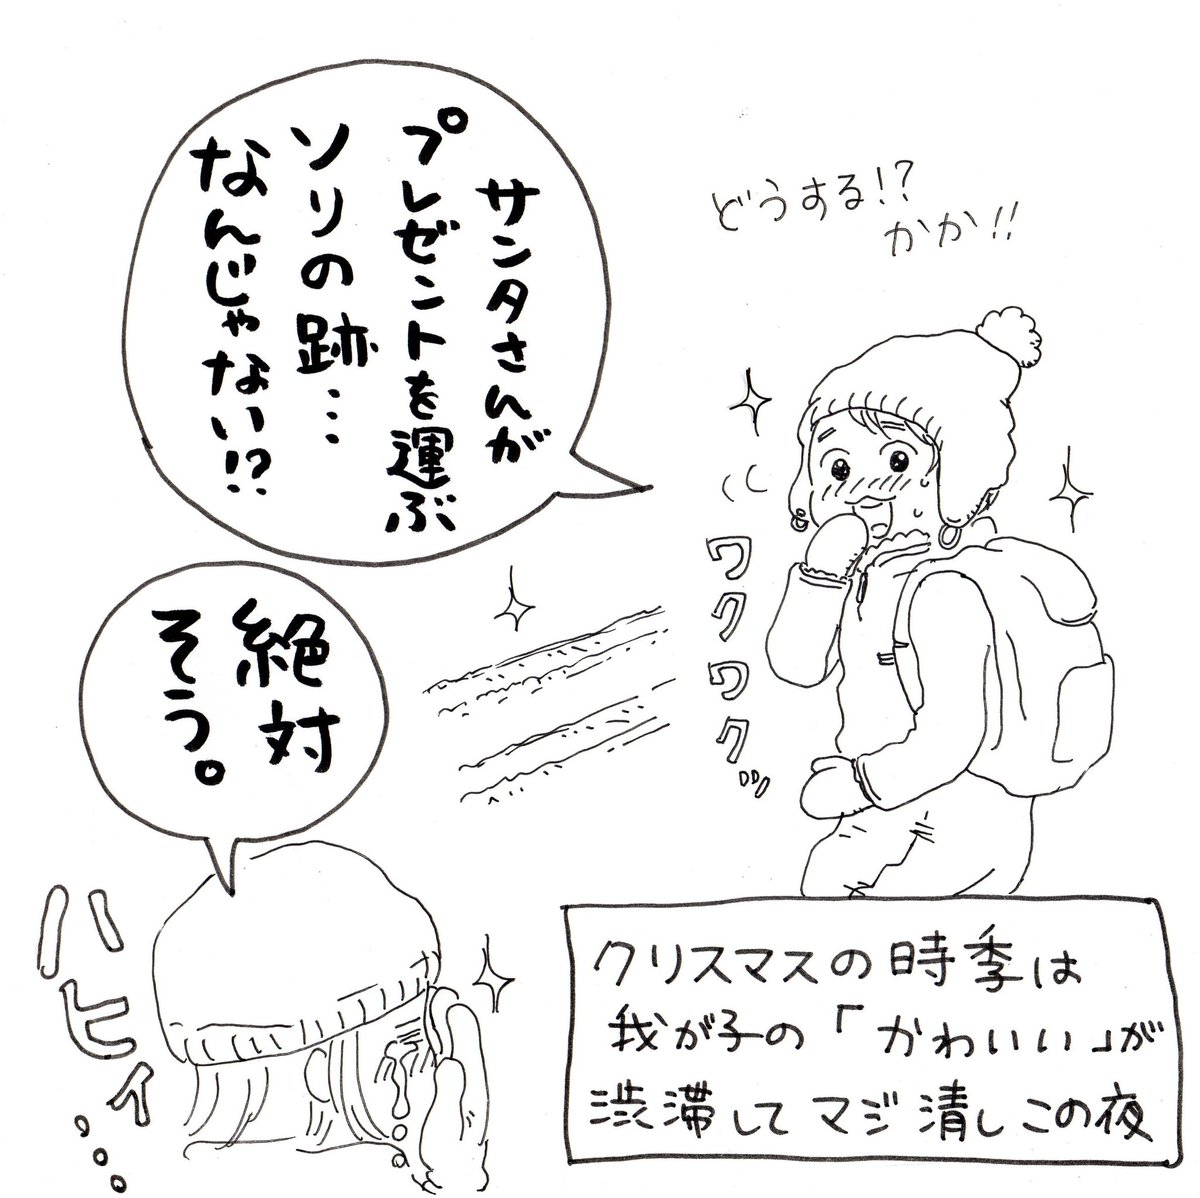 サンタさんが
プレゼントを運ぶ
ソリの跡…
なんじゃない!?
どうする!?
かか!!
ワクワク
絶対
そう。
ハヒィ…
クリスマスの時季は
我が子の「かわいい」が
渋滞してマジ清しこの夜